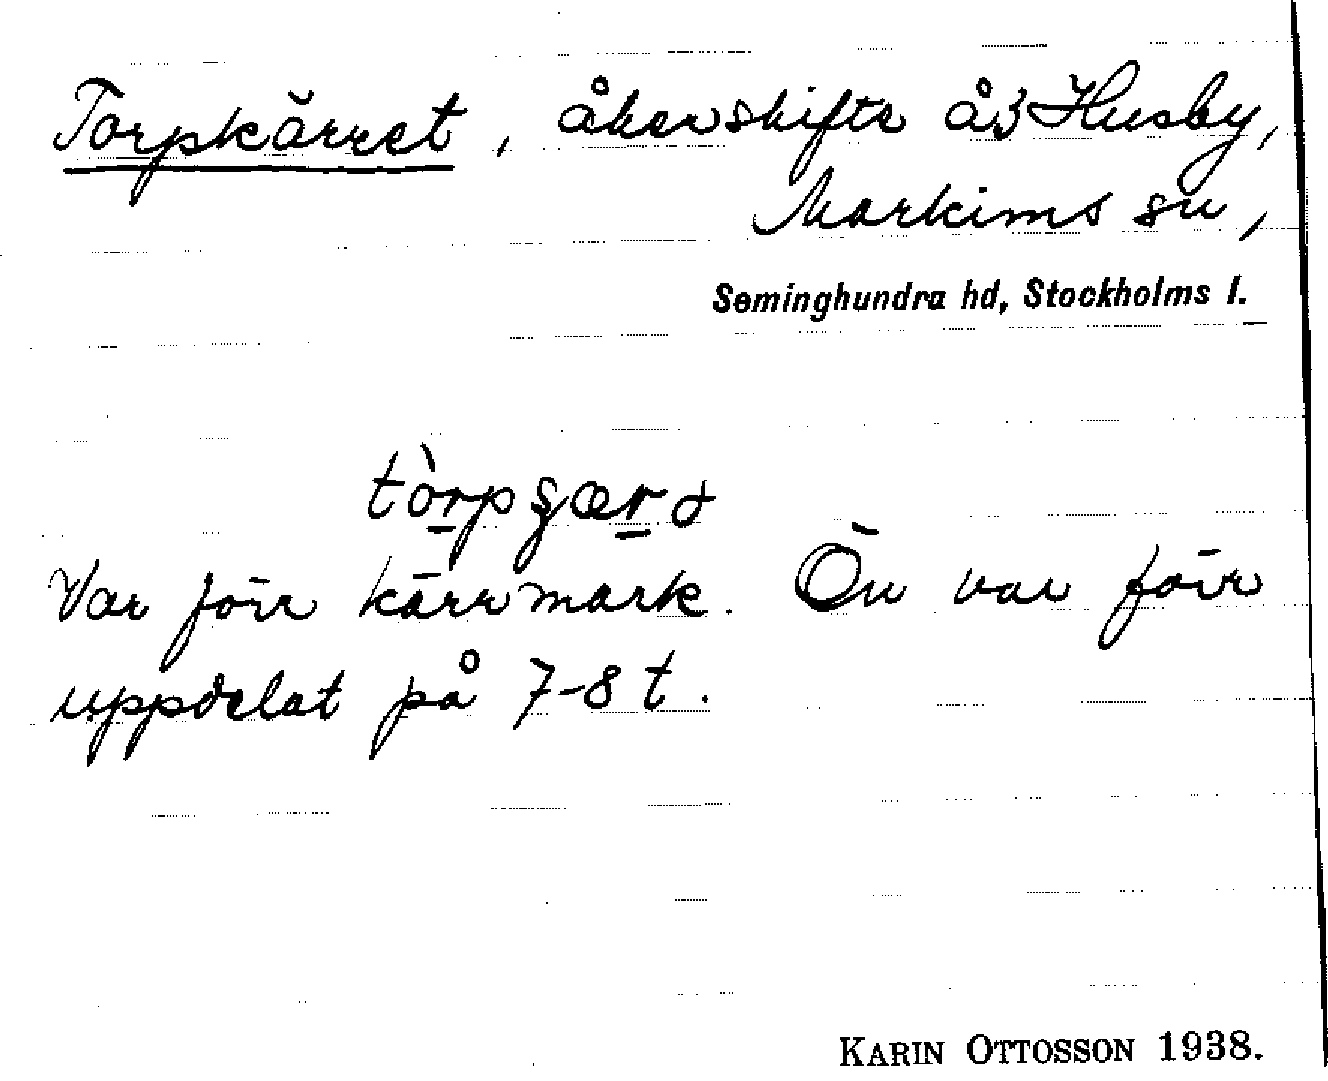 Torpkärret, åkerskifte å3 Husby,
Markims sn,
Seminghundra hd, Stockholms l.
tòrpçærə
Var förr kärrmark. Ön var förr
uppdelat på 7-8 t.
KARIN OTTOSSON 1938.